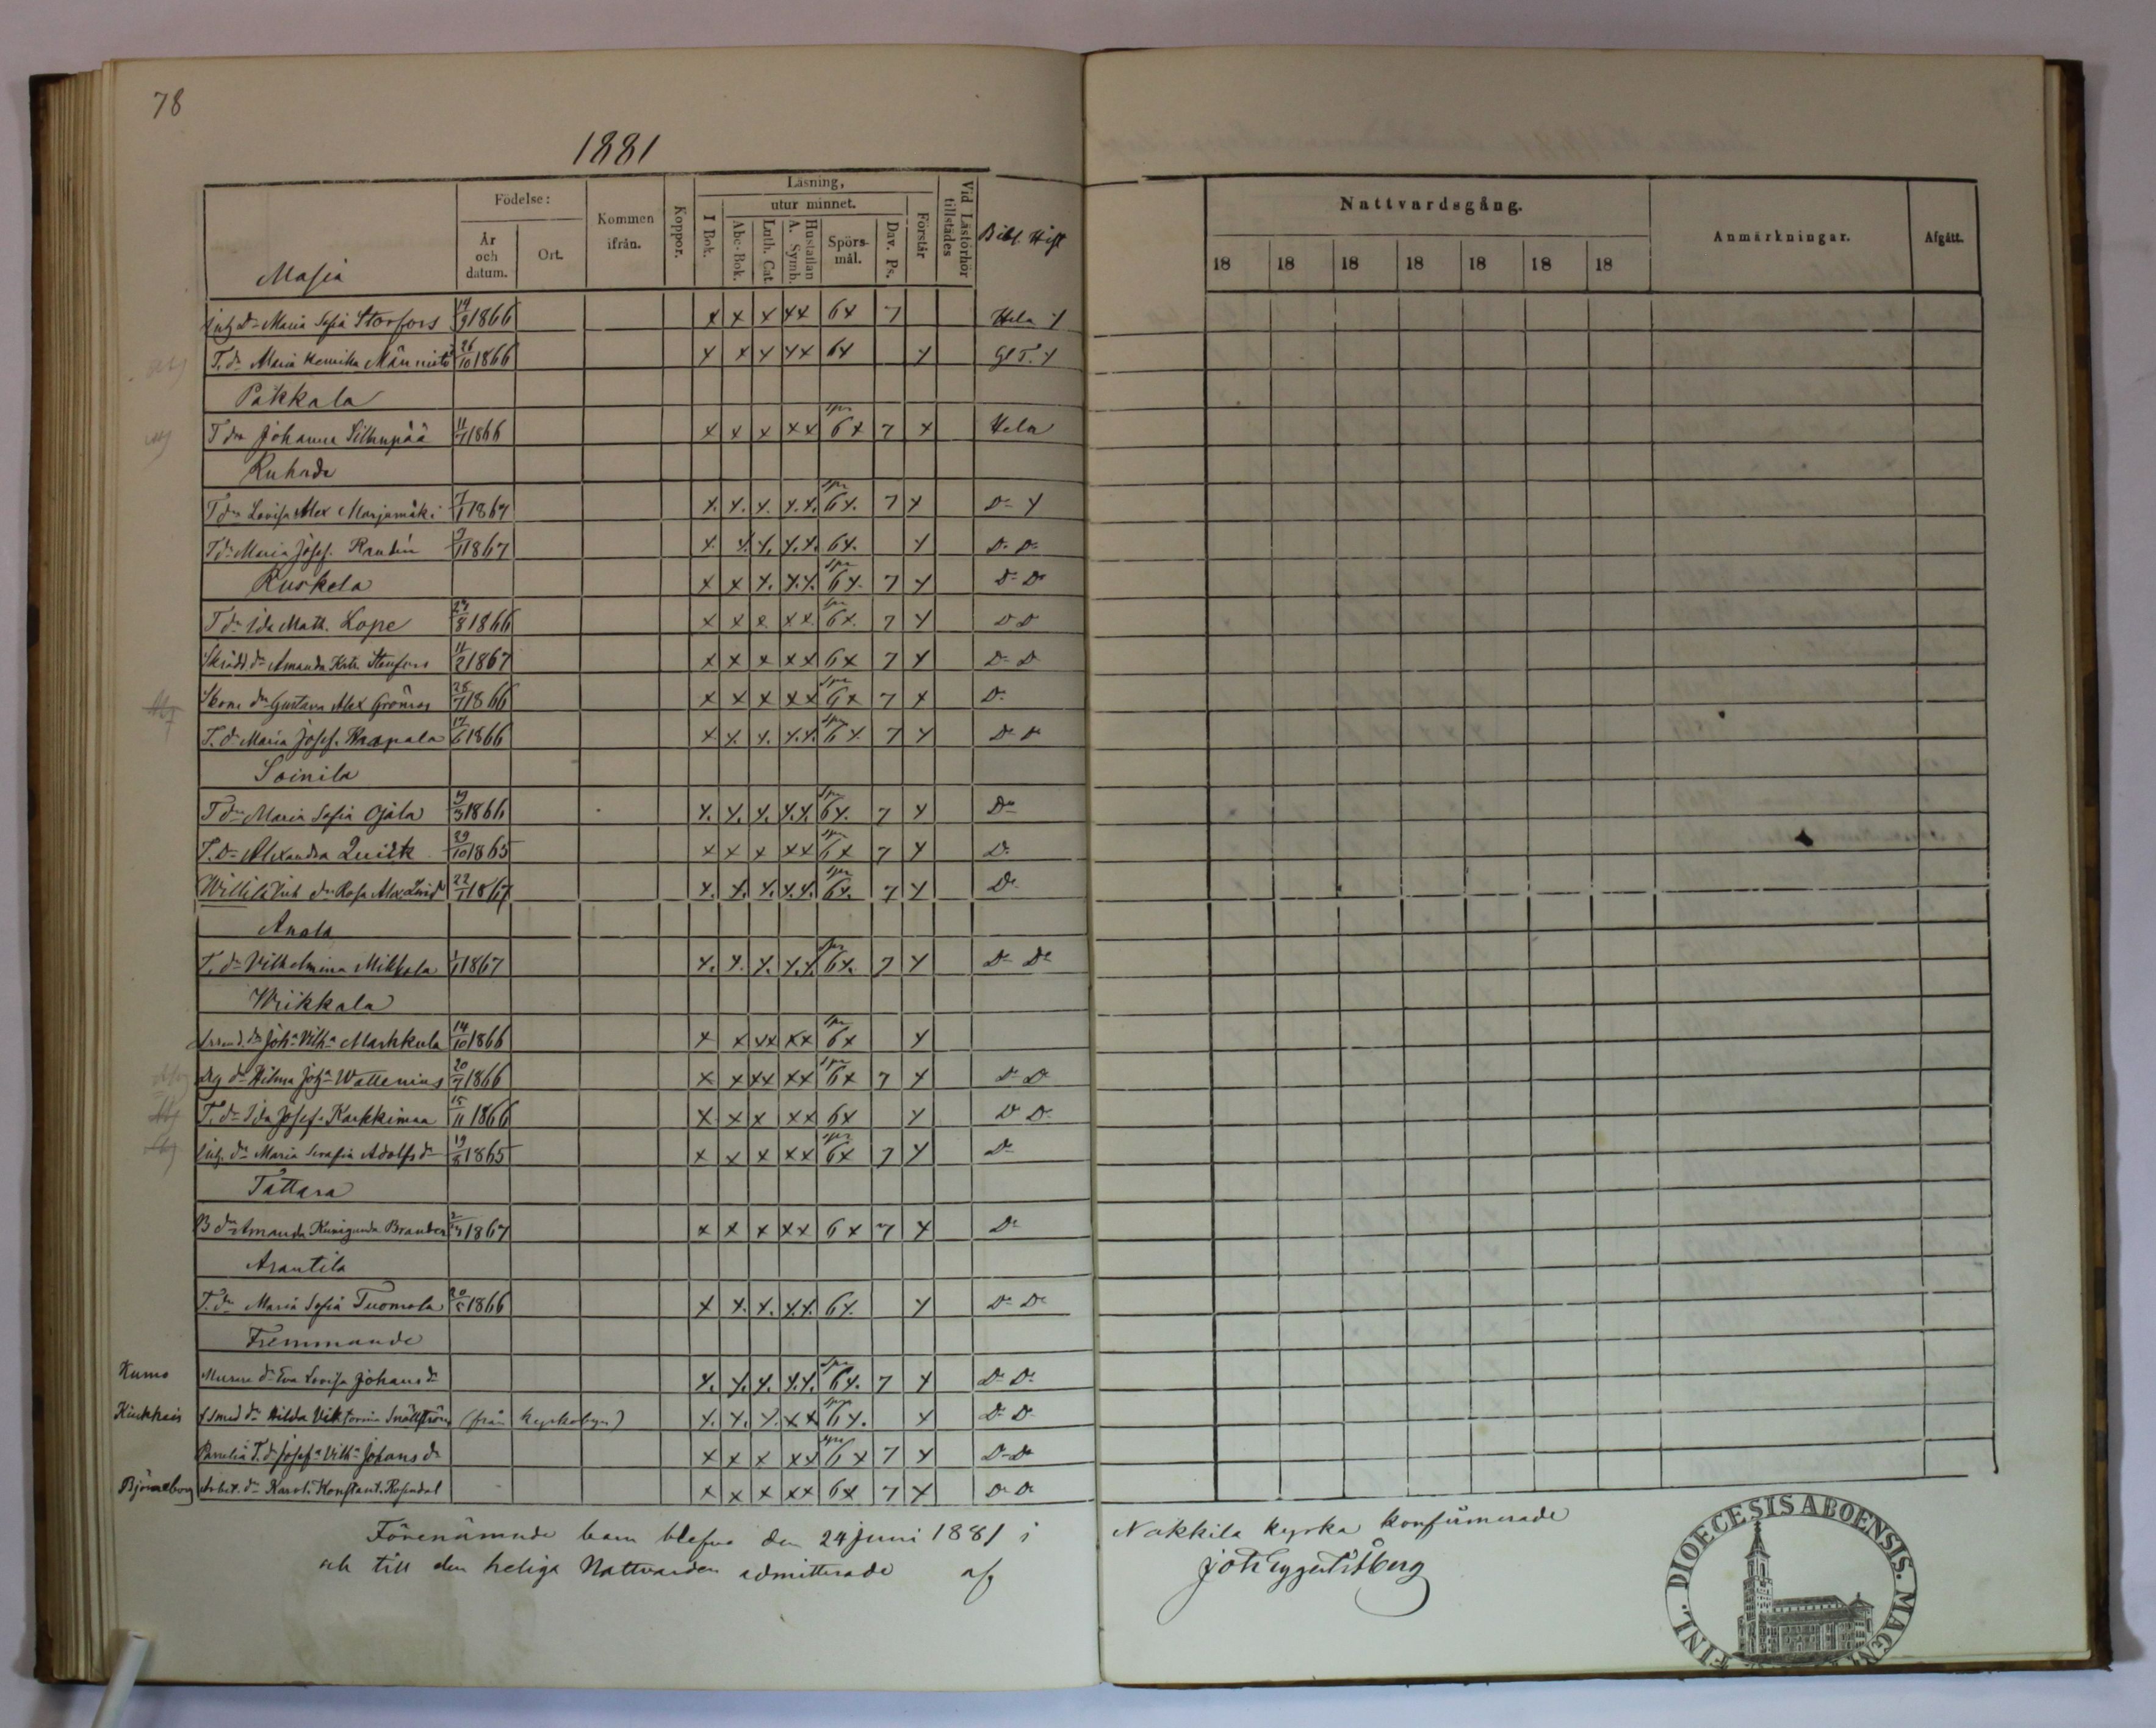 78
1881
Födelse:
År och datum.
Ort.
Kommen ifrån.
Koppor.
Läsning,
utur minnet.
I Bok.
Abc-Bok.
Luth. Cat.
Hustaflan A. Symb.
Spörsmål.
Dav. Ps.
Förstår
Vid Läsförhör tillstädes
Bibl. Hist
Nattvardsgång.
18 18 18 18 18 18 18
Anmärkningar.
Afgått.
Masia
Inh. dr Maria Sofia Storfors 19/9 1866 x x x xx 6x 7 Hela x
T. dr Maria Henrika Männistö 26/10 1866 x x x xx 6x x Gl T. x
Pakkala
T dr Johanna Silhnpää 11/7 1866 x x x xx spr 6x 7 x Hela
Ruhade
T dr Lovisa Alex Marjamäki 7/1 1867 x. x. x. x.x. spr 6x. 7 x Do x
T. dr Maria Josef. Rantin 1867 x. x. x. x.x. 6x. x Do Do
Ruskela x x x. x.x. spr 6x. 7 x Do Do
T dr Ida Math. Lope 27/8 1866 x x x xx spr 6x. 7 x Do Do
Skrädd dr Amanda Stenfors 11/2 1867 x x x xx 6x 7 x Do Do
Skom dr Gustava Alex Grönros 28/7 1866 x x x xx spr 6x 7 x Do
T. dr Maria Josef. Haapala 17/6 1866 x x. x. x.x. spr 6x. 7 x Do Do
Soinila
T dr Maria Sofia Ojala 19/3 1866 x. x. x. x.x. spr 6x. 7 x Do
T. dr Alexandra Quick 29/10 1865 x x x xx spr 6x 7 x Do
Willilä Inh dr Rosa Alex. 22/1 1867 x. x. x. x.x. spr 6x. 7 x Do
Anola
T. dr Vilhelmina Mikkola 1/1 1867 x. x. x. x.x. spr 6x. 7 x Do Do
Wiikkala
dr Joha Vilha Markkula 14/10 1866 x x xx xx spr 6x x
dr Hilma Joha Wallenius 20/7 1866 x x xx xx spr 6x 7 x Do Do
T. dr Ida Josefa Karkkimaa 15/11 1866 x x x xx 6x x Do Do
Inh. dr Maria Serafia Adolfs dr 19/8 1865 x x x xx spr 6x 7 x Do
Tattara
B dr Amanda Kunigunda Brander 2/3 1867 x x x xx 6x 7 x Do
Arantila
T. dr Maria Sofia Tuomola 20/5 1866 x x. x. x.x. 6x. x Do Do
Fremmande
Kumo Murare dr Eva Lovisa Johans dr x. x. x. x.x. spr 6x. 7 x Do Do
Kiukkais Smed dr Hilda Viktorina Snällström (från kyrkobyn) x. x. x. xx spr 6x. x Do Do
Panelia T. dr Josefa Vilha Johans dr x x x xx spr 6x 7 x Do Do
Björneborg Arbet. dr Karol. Konstant. Rosendal x x x xx 6x 7 x Do Do
Förenämnde barn blefvo den 24 juni 1881 i Nakkila kyrka konfirmerade
och till den heliga Nattvarden admitterade af
FINL. DIOECESIS ABOENSIS. MAGNI